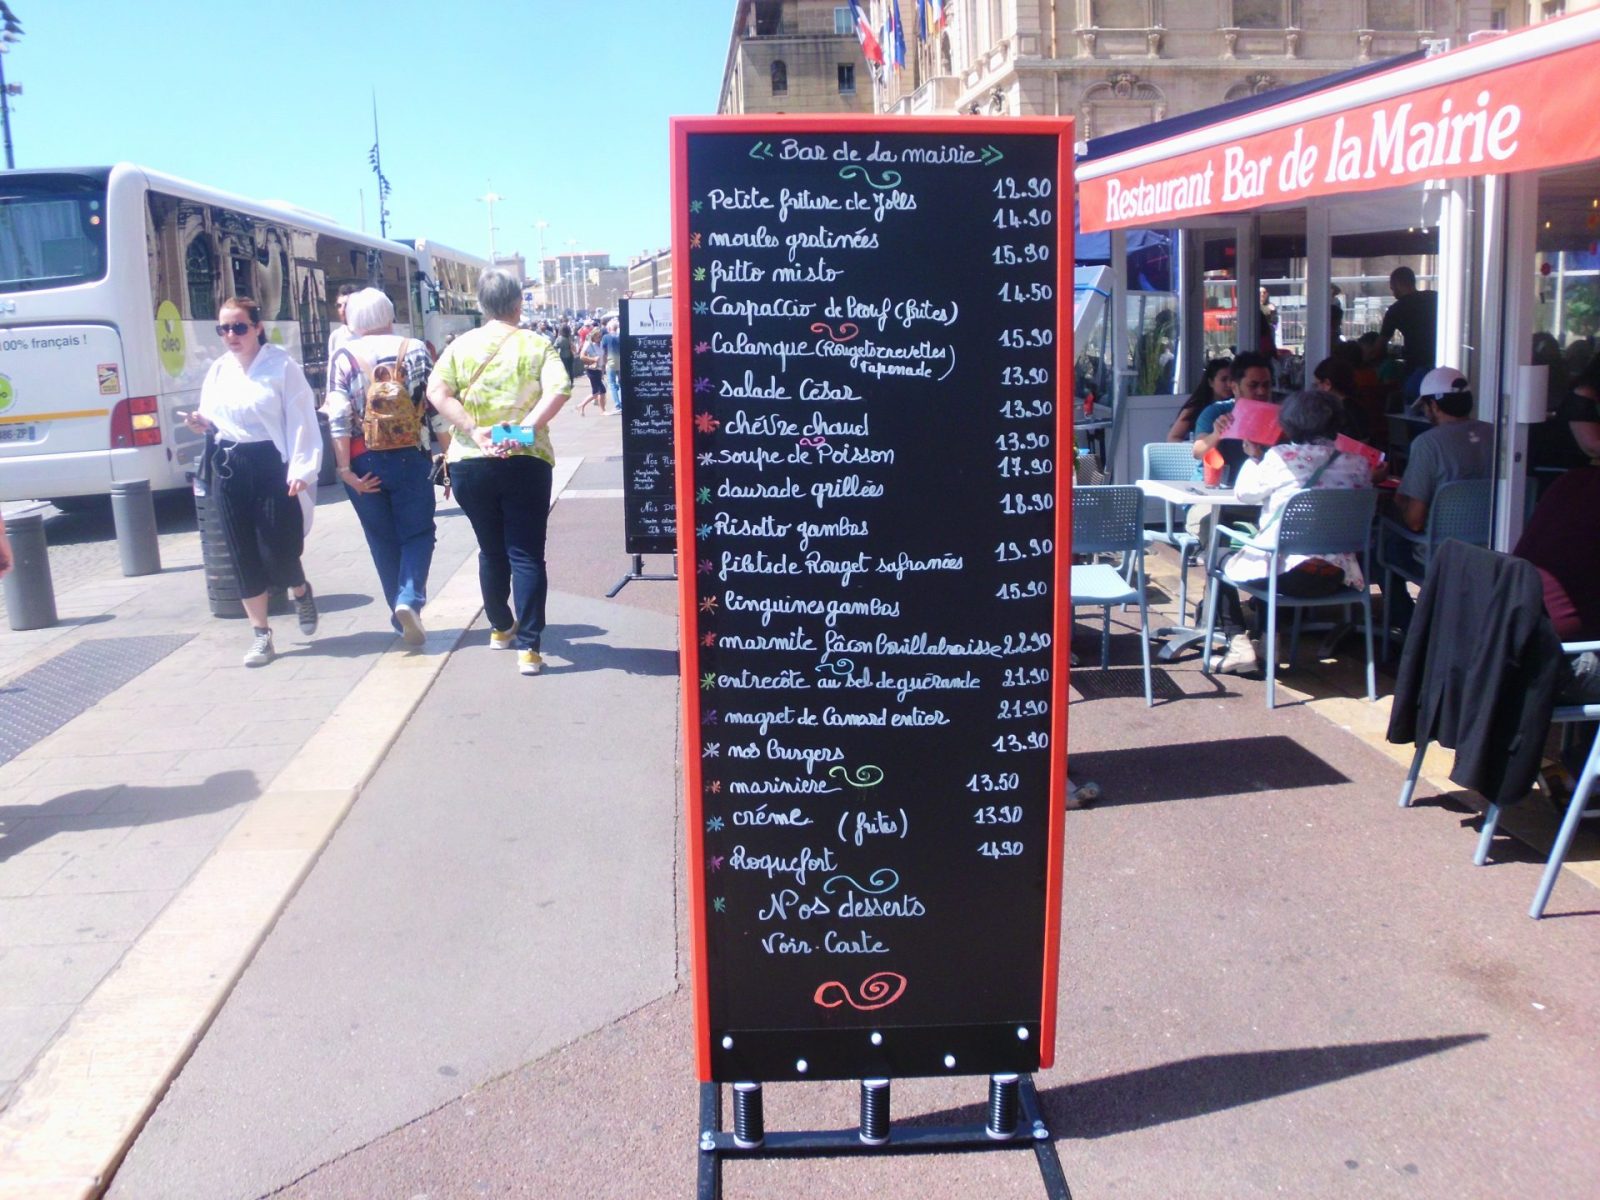 « Bar de la mairie »
Petite friture de Jolls 12.90
moules gratinées 14.90
fritto misto 15.90
Carpaccio de bœuf (frites) 14.50
Calanque (Rougets crevettes 15.90
tapenade)
salade César 13.90
chèvre chaud 13.90
soupe de Poisson 13.90
daurade grillées 17.90
Risotto gambas 18.90
filets de Rouget safranées 19.90
linguines gambas 15.90
marmite façon Bouillabaisse 22.90
entrecôte au sel de guérande 21.90
magret de Canard entier 21.90
nos burgers 13.90
mariniere 13.50
créme (frites) 13.90
Roquefort 14.90
Nos desserts
Voir. Carte
Restaurant Bar de la Mairie
100% français !
oleo
New Terra
FORMULE